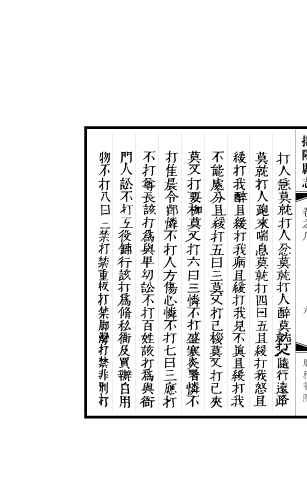 打人急莫就打人忿莫就打人醉莫就打人隨行遠路
莫就打人跑來喘息莫就打四曰五且緩打我怒且
緩打我醉且緩打我病且緩打我見不真且緩打我
不能處分且緩打五曰三莫又打已桚莫又打已夾
莫又打要枷莫又打六曰三憐不打盛寒炎暑憐不
打佳晨令節憐不打人方傷心憐不打七曰三應打
不打尊長該打爲與卑幼訟不打百姓該打爲與衙
門人訟不打工役鋪行該打爲脩私衙及買辦自用
物不打八曰三禁打禁重板打禁脚彎打禁非刑打